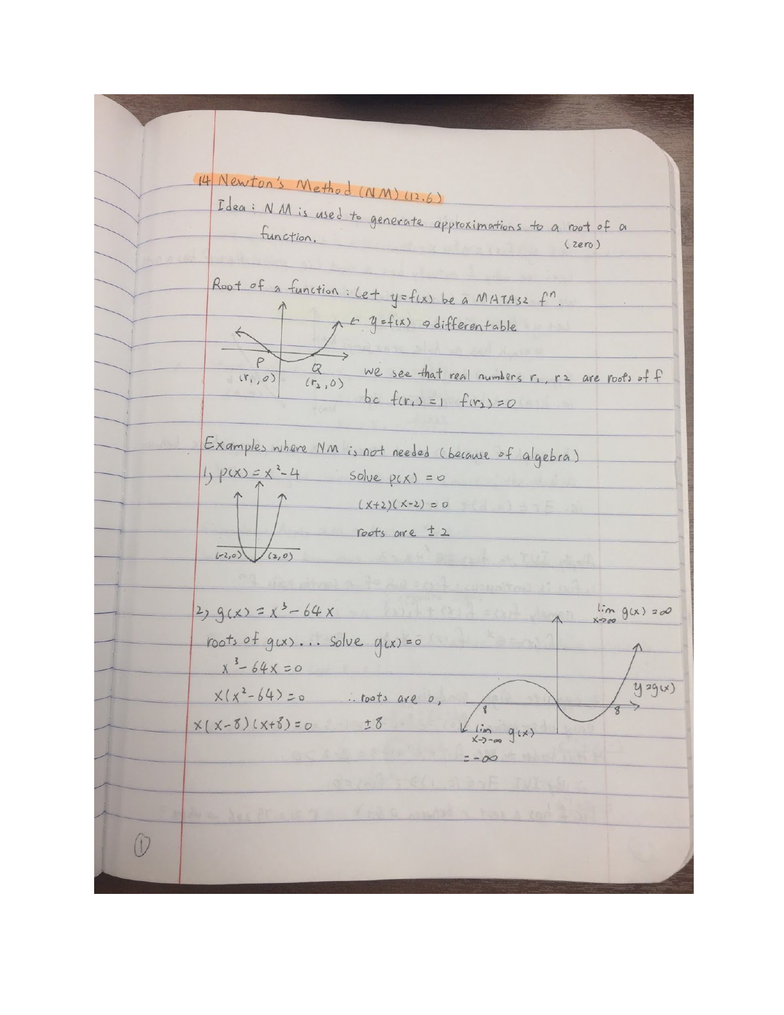 14 Newton's Method (NM) (12.6)
Idea: NM is used to generate approximations to a root of a
function. (zero)
Root of a function: Let y=f(x) be a MATA32 fⁿ.
← y=f(x) differentable
P Q
(r₁,0) (r₂,0)
we see that real numbers r₁, r₂ are roots of f
bc f(r₁)=1 f(r₂)=0
Examples where NM is not needed (because of algebra)
1) p(x)=x²-4 solve p(x)=0
(x+2)(x-2)=0
roots are ±2
(-2,0) (2,0)
2) g(x)=x³-64x
lim x→∞ g(x)=∞
roots of g(x)... solve g(x)=0
x³-64x=0
y=g(x)
x(x²-64)=0 ∴ roots are 0,
8 8
x(x-8)(x+8)=0 ±8
lim x→-∞ g(x)
=-∞
1